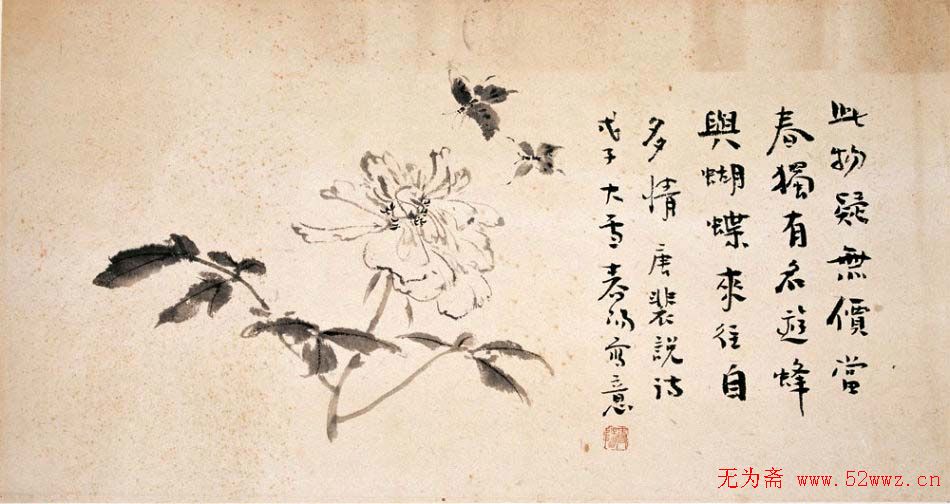 此物疑無價當
春獨有名遊蜂
與蝴蝶來往自
多情 唐裴説诗
戊子大雪春寫意
无为斋 www.52wwz.cn